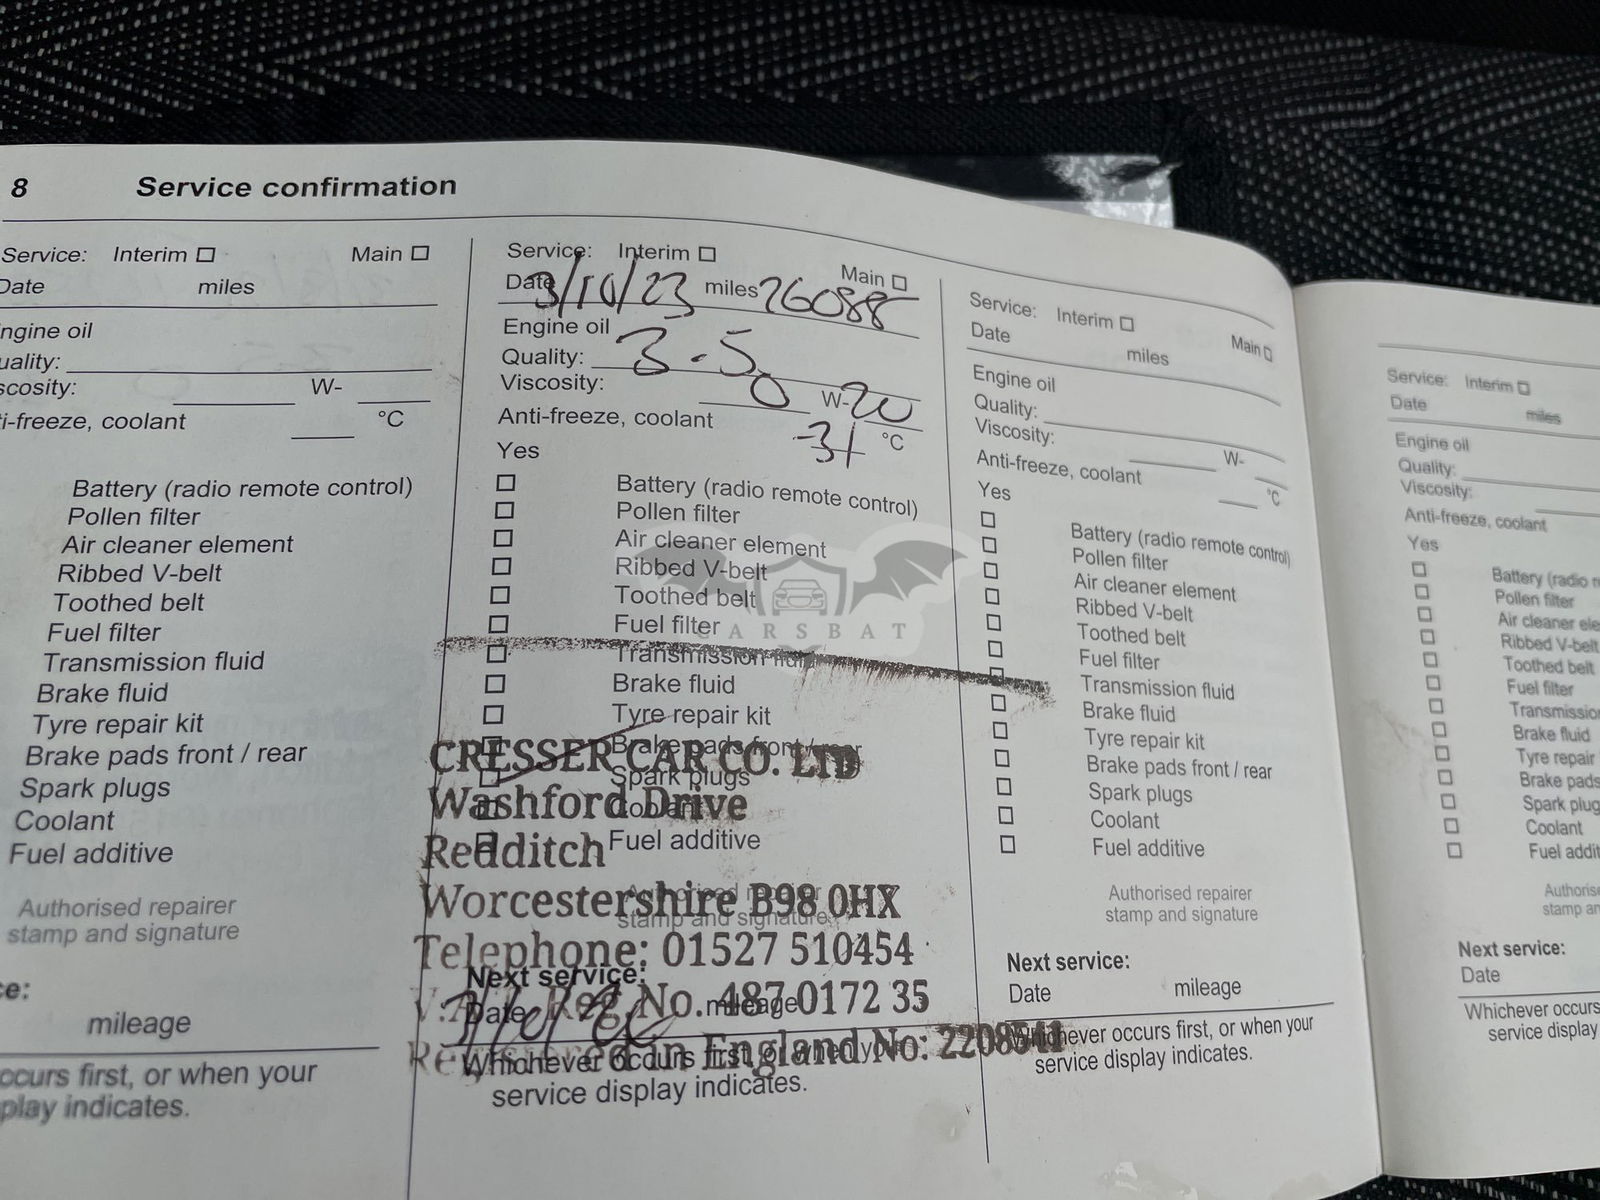 8 Service confirmation
Service: Interim Main
Date miles
ngine oil
uality:
scosity: W-
ti-freeze, coolant °C
Battery (radio remote control)
Pollen filter
Air cleaner element
Ribbed V-belt
Toothed belt
Fuel filter
Transmission fluid
Brake fluid
Tyre repair kit
Brake pads front / rear
Spark plugs
Coolant
Fuel additive
Authorised repairer
stamp and signature
ce:
mileage
ccurs first, or when your
play indicates.
Service: Interim Main
Date 3/10/23 miles 26088
Engine oil
Quality: 3-5
Viscosity: 0 W-20
Anti-freeze, coolant -31 °C
Yes
Battery (radio remote control)
Pollen filter
Air cleaner element
Ribbed V-belt
Toothed belt
Fuel filter
CARSBAT
Transmission fluid
Brake fluid
Tyre repair kit
Brake pads front / rear
CRESSER CAR CO. LTD
Spark plugs
Washford Drive
Coolant
Redditch
Fuel additive
Worcestershire B98 0HX
Authorised repairer
stamp and signature
Telephone: 01527 510454
Next service:
Reg. No. 487 0172 35
Date mileage
Registered in England No: 2208541
Whichever occurs first, or when your
service display indicates.
Service: Interim Main
Date miles
Engine oil
Quality:
Viscosity: W-
Anti-freeze, coolant °C
Yes
Battery (radio remote control)
Pollen filter
Air cleaner element
Ribbed V-belt
Toothed belt
Fuel filter
Transmission fluid
Brake fluid
Tyre repair kit
Brake pads front / rear
Spark plugs
Coolant
Fuel additive
Authorised repairer
stamp and signature
Next service:
Date mileage
Whichever occurs first, or when your
service display indicates.
Service: Interim
Date miles
Engine oil
Quality:
Viscosity:
Anti-freeze, coolant
Yes
Battery (radio r
Pollen filter
Air cleaner ele
Ribbed V-belt
Toothed belt
Fuel filter
Transmission
Brake fluid
Tyre repair
Brake pads
Spark plug
Coolant
Fuel addit
Authoris
stamp an
Next service:
Date
Whichever occurs
service display